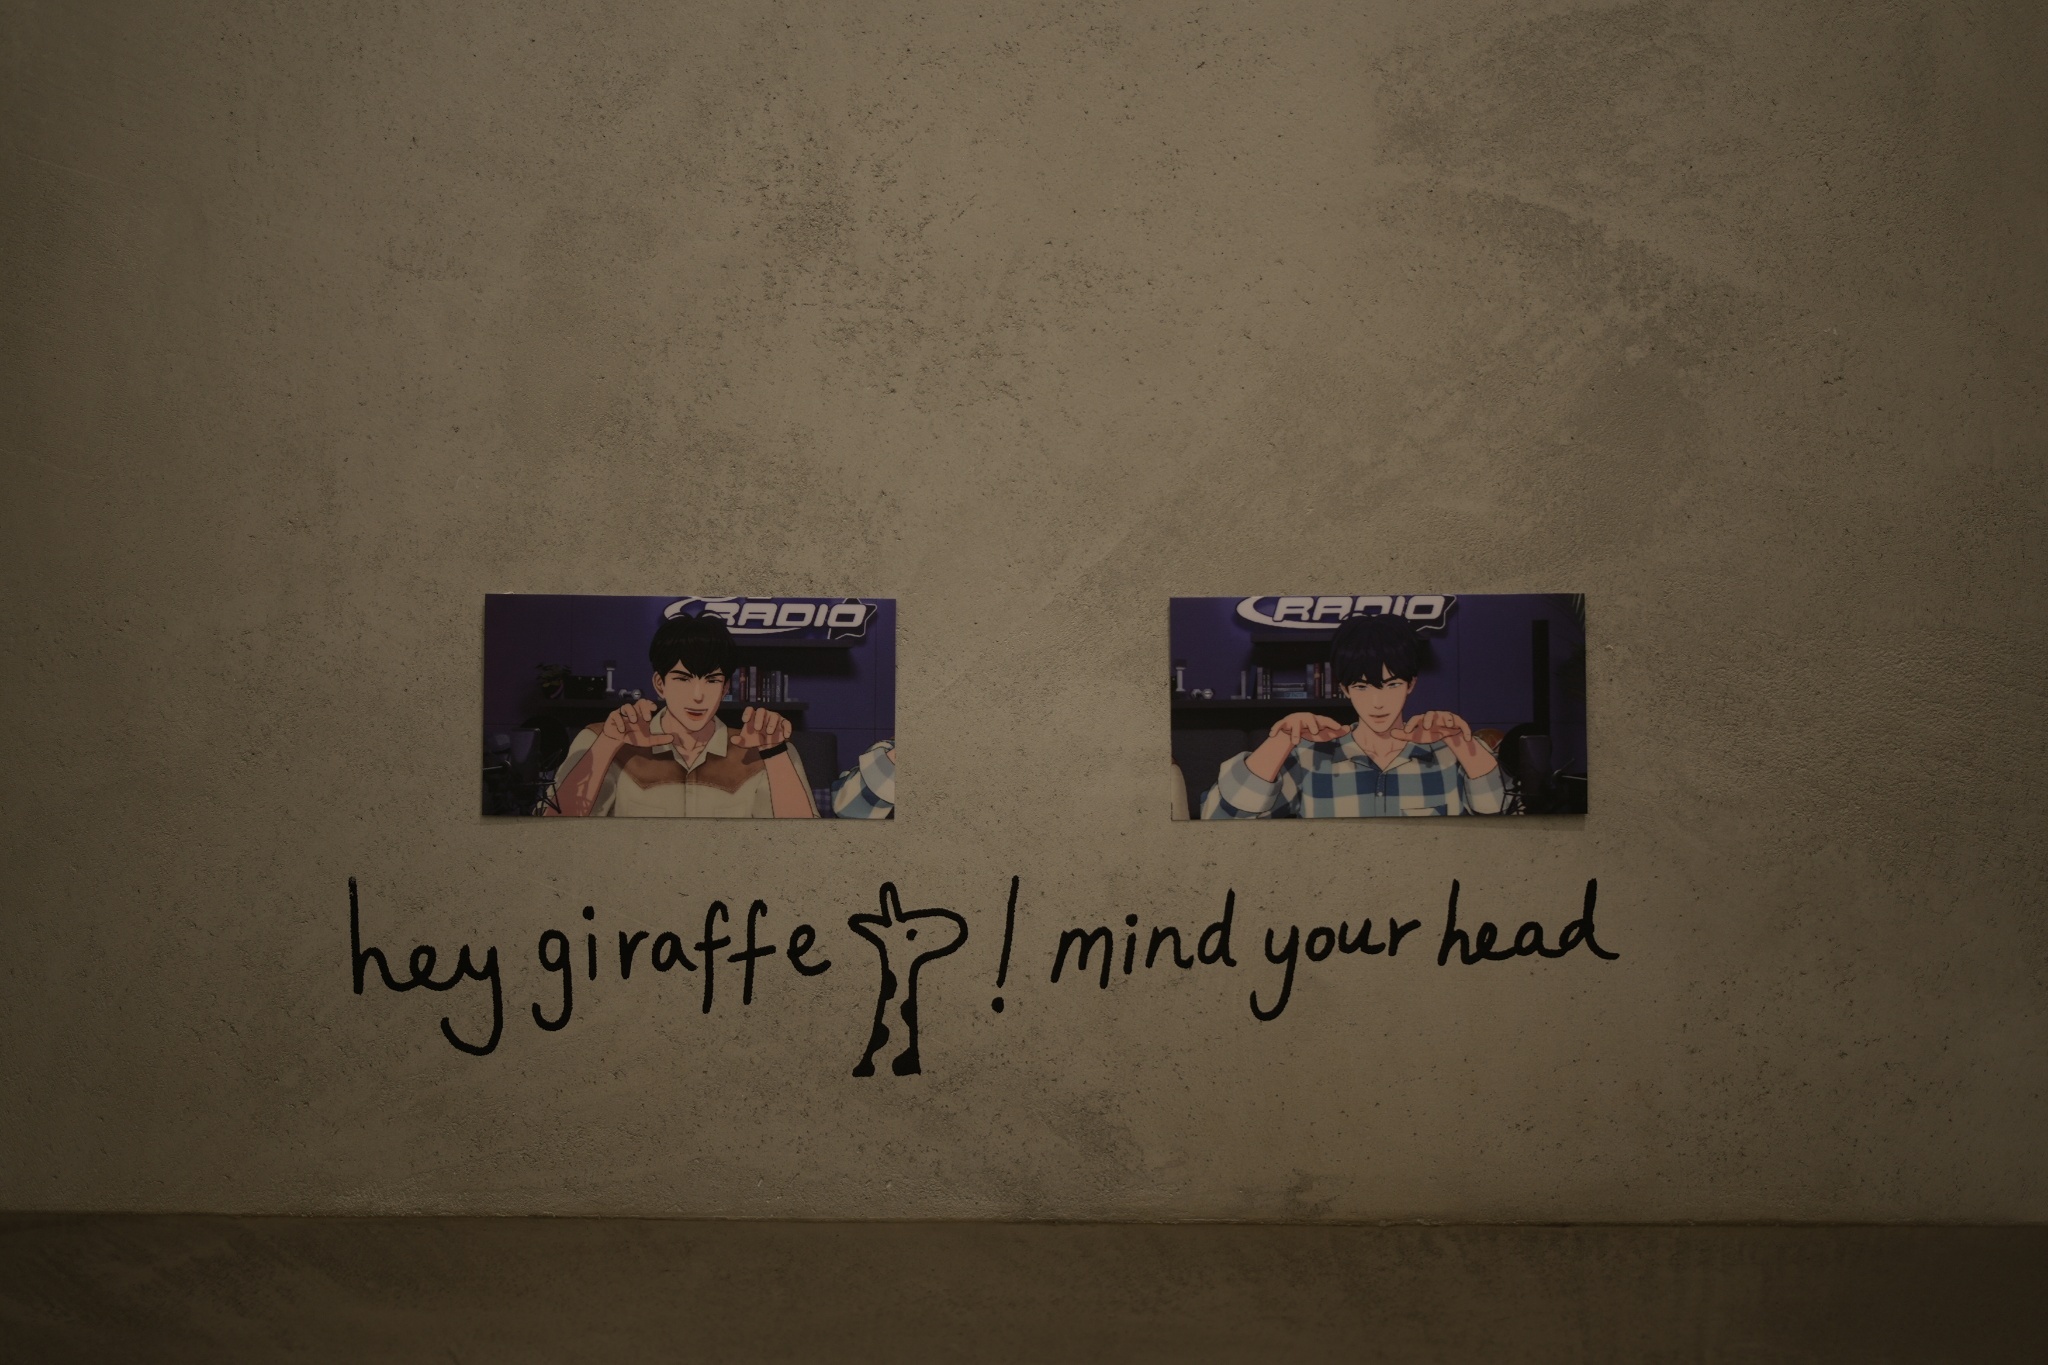 RADIO
RADIO
hey giraffe ! mind your head